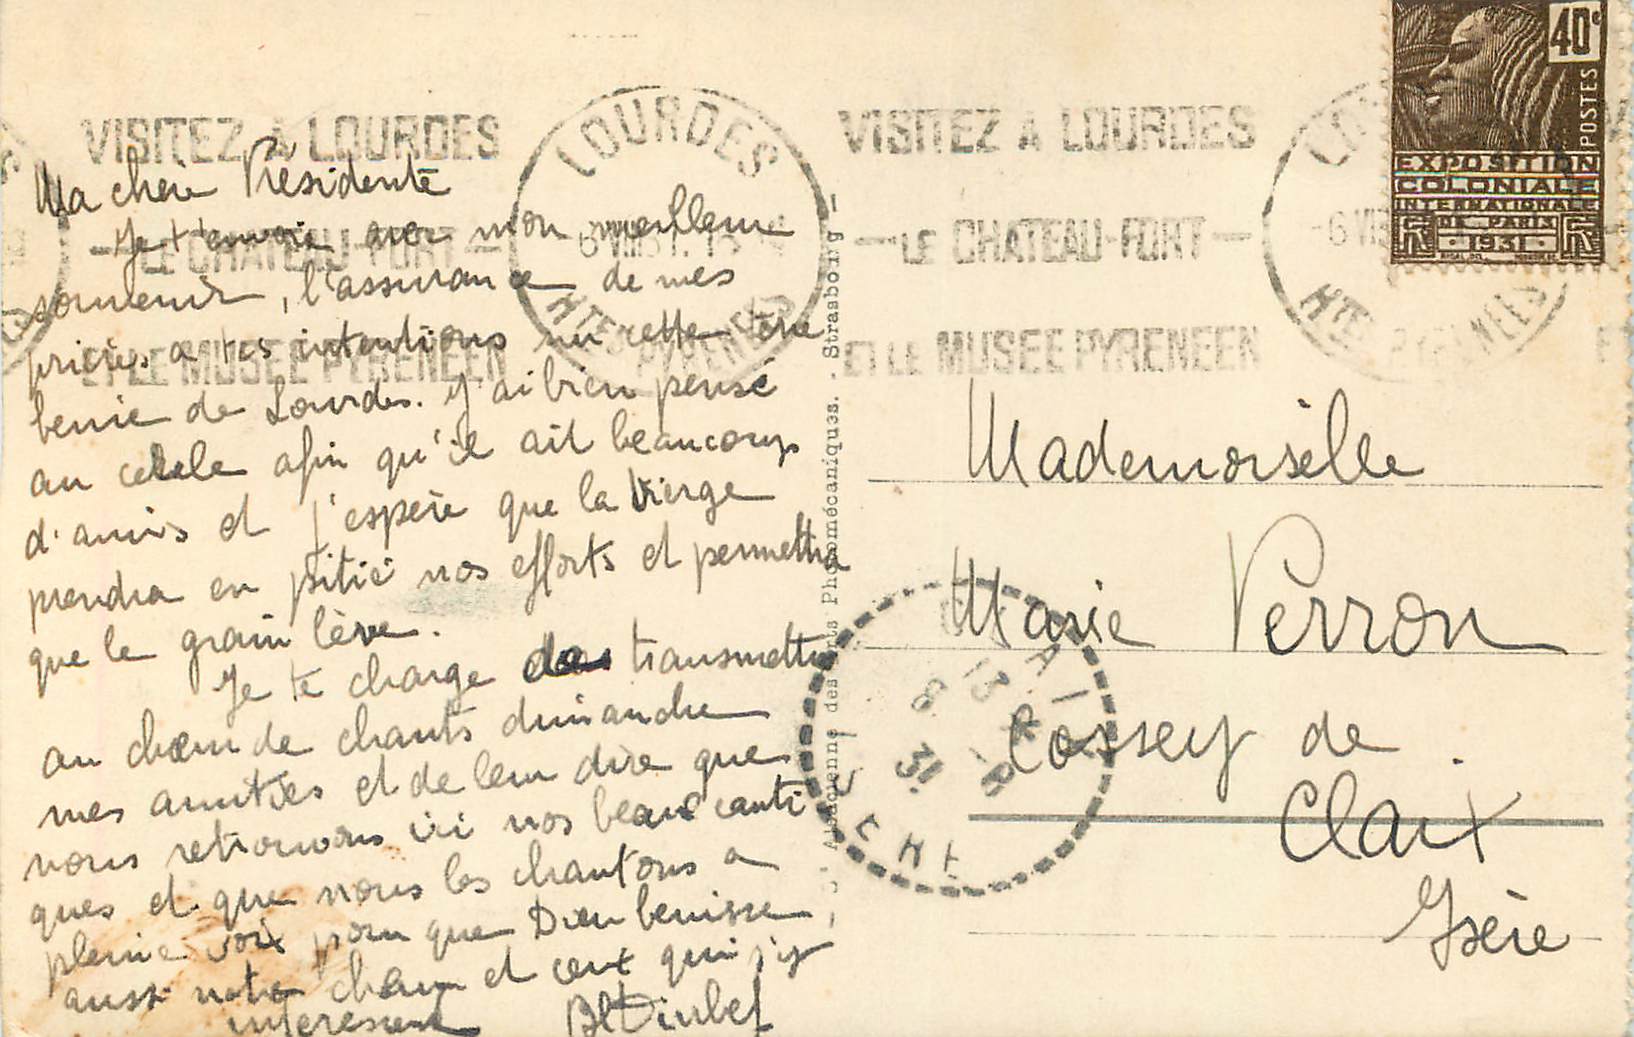 VISITEZ A LOURDES
LE CHATEAU-FORT
ET LE MUSEE PYRENEEN
LOURDES
HTES PYRENEES
VISITEZ A LOURDES
LE CHATEAU-FORT
ET LE MUSEE PYRENEEN
HTES PYRENEES
40c
POSTES
EXPOSITION
COLONIALE
INTERNATIONALE
DE PARIS
1931
Ma chère Présidente
Je t'envoie avec mon meilleur
souvenir, l'assurance de mes
prières a tes intentions sur cette terre
benie de Lourdes. J'ai bien pensé
au cercle afin qu'il ait beaucoup
d'amis et j'espère que la Vierge
prendra en pitié nos efforts et permettra
que le grain lève.
Je te charge de transmettre
au chœur de chants dimanche
mes amitiés et de leur dire que
nous retrouvons ici nos beaux canti
ques et que nous les chantons a
pleine voix pour que Dieu benisse
aussi notre chœur et ceux qui s'y
interessent
Mademoiselle
Marie Perron
Cossey de
Claix
Isère
des Arts Photomécaniques. - Strasbourg -
CLAIX
13
8
31
ISERE